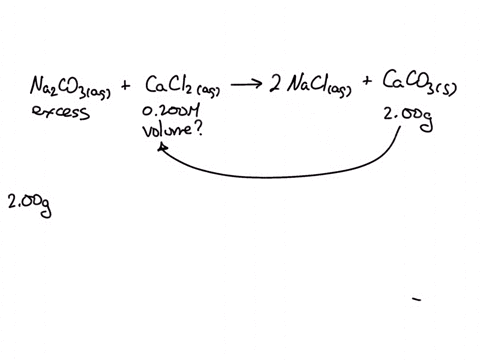 Na2CO3(aq) + CaCl2(aq) → 2 NaCl(aq) + CaCO3(s)
excess 0.200M 2.00g
volume?
2.00g